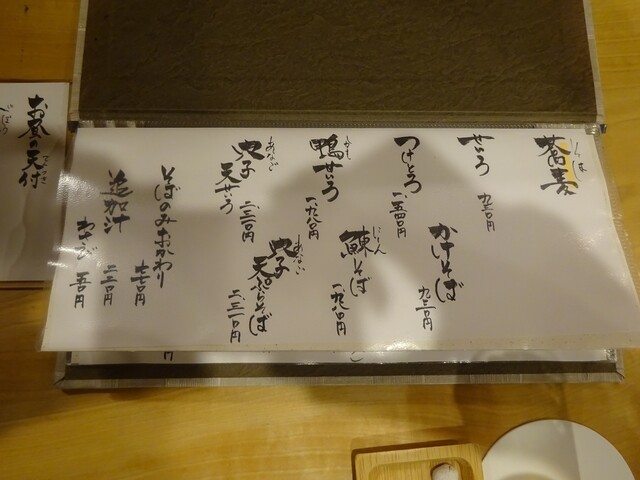 蕎麦
そば
せいろ
九三〇円
かけそば
九三〇円
つけとろ
一、五四〇円
鰊そば
にしん
一、九八〇円
鴨せいろ
かも
一、九八〇円
穴子
天ぷらそば
穴子
天せいろ
あなご
そばのみおかわり
七七〇円
追加汁
二二〇円
わさび
五〇円
お昼の天付